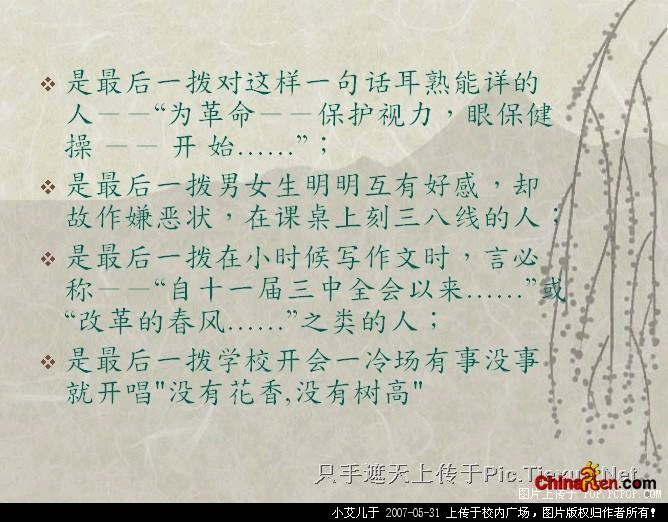 是最后一拨对这样一句话耳熟能详的
人——“为革命——保护视力，眼保健
操 —— 开 始……”；
是最后一拨男女生明明互有好感，却
故作嫌恶状，在课桌上刻三八线的人；
是最后一拨在小时候写作文时，言必
称——“自十一届三中全会以来……”或
“改革的春风……”之类的人；
是最后一拨学校开会一冷场有事没事
就开唱"没有花香,没有树高"
只手遮天上传于Pic.Tiexue.Net
ChinaRen.com
图片上传于 POP.PCPOP.COM
小艾儿于 2007-05-31 上传于校内广场，图片版权归作者所有！